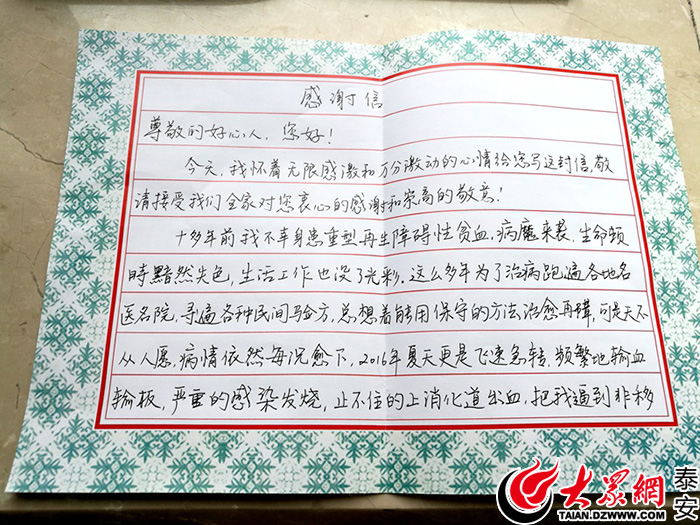 感谢信
尊敬的好心人，您好！
今天，我怀着无限感激和万分激动的心情给您写这封信，敬
请接受我们全家对您衷心的感谢和崇高的敬意！
十多年前我不幸身患重型再生障碍性贫血，病魔来袭，生命顿
時黯然失色，生活工作也没了光彩。这么多年为了治病跑遍各地名
医名院，寻遍各种民间验方，总想着能用保守的方法治愈再障，可是天不
从人愿，病情依然每况愈下，2016年夏天更是飞速急转，频繁地输血
输板，严重的感染发烧，止不住的上消化道出血，把我逼到非移
大众網 泰安
TAIAN.DZWWW.COM